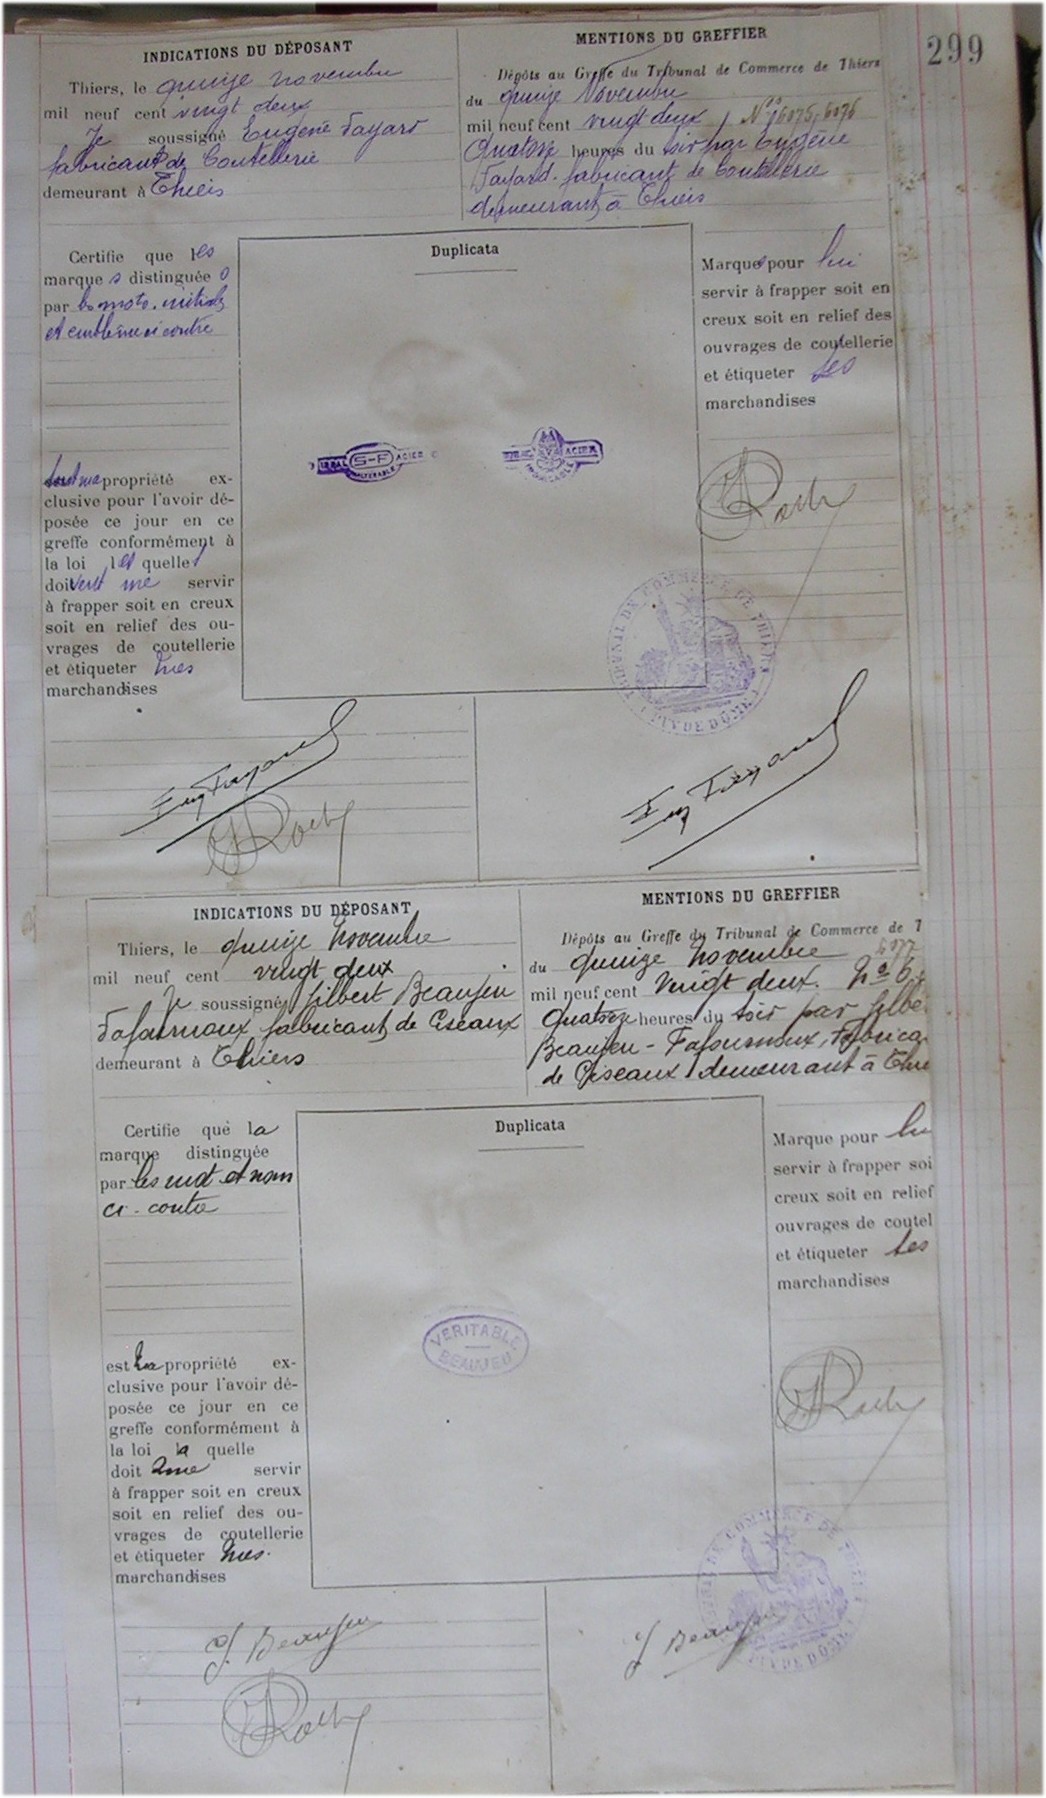 299
INDICATIONS DU DÉPOSANT
Thiers, le quinze novembre
mil neuf cent vingt deux
Je soussigné Eugène Fayard
fabricant de Coutellerie
demeurant à Thiers
MENTIONS DU GREFFIER
Dépôts au Greffe du Tribunal de Commerce de Thiers
du quinze Novembre
mil neuf cent vingt deux Nos 6075, 6076
Quatorze heures du soir par Eugène
Fayard fabricant de Coutellerie
demeurant à Thiers
Certifie que les
marques distinguées
par les mots, initiales
et emblème ci contre
sont ma propriété ex-
clusive pour l'avoir dé-
posée ce jour en ce
greffe conformément à
la loi les quelles
doivent me servir
à frapper soit en creux
soit en relief des ou-
vrages de coutellerie
et étiqueter mes
marchandises
Duplicata
S-F ACIER
ACIER
Marques pour lui
servir à frapper soit en
creux soit en relief des
ouvrages de coutellerie
et étiqueter ses
marchandises
Roche
TRIBUNAL DE COMMERCE DE THIERS
(PUY DE DÔME)
Eug Fayard
Roche
Eug Fayard
INDICATIONS DU DÉPOSANT
Thiers, le quinze novembre
mil neuf cent vingt deux
Je soussigné Gilbert Beaujeu
Fafournoux fabricant de Ciseaux
demeurant à Thiers
MENTIONS DU GREFFIER
Dépôts au Greffe du Tribunal de Commerce de T
6077
du quinze novembre
mil neuf cent vingt deux. No 6
Quatorze heures du soir par Gilbe
Beaujeu - Fafournoux, Fabrica
de Ciseaux demeurant à Thie
Certifie que la
marque distinguée
par les mot et nom
ci-contre
est ma propriété ex-
clusive pour l'avoir dé-
posée ce jour en ce
greffe conformément à
la loi la quelle
doit me servir
à frapper soit en creux
soit en relief des ou-
vrages de coutellerie
et étiqueter mes
marchandises
Duplicata
VERITABLE
BEAUJEU
Marque pour lui
servir à frapper soi
creux soit en relief
ouvrages de coutel
et étiqueter ses
marchandises
Roche
COMMERCE DE THIERS
PUY DE DÔME
G. Beaujeu
Roche
G. Beaujeu